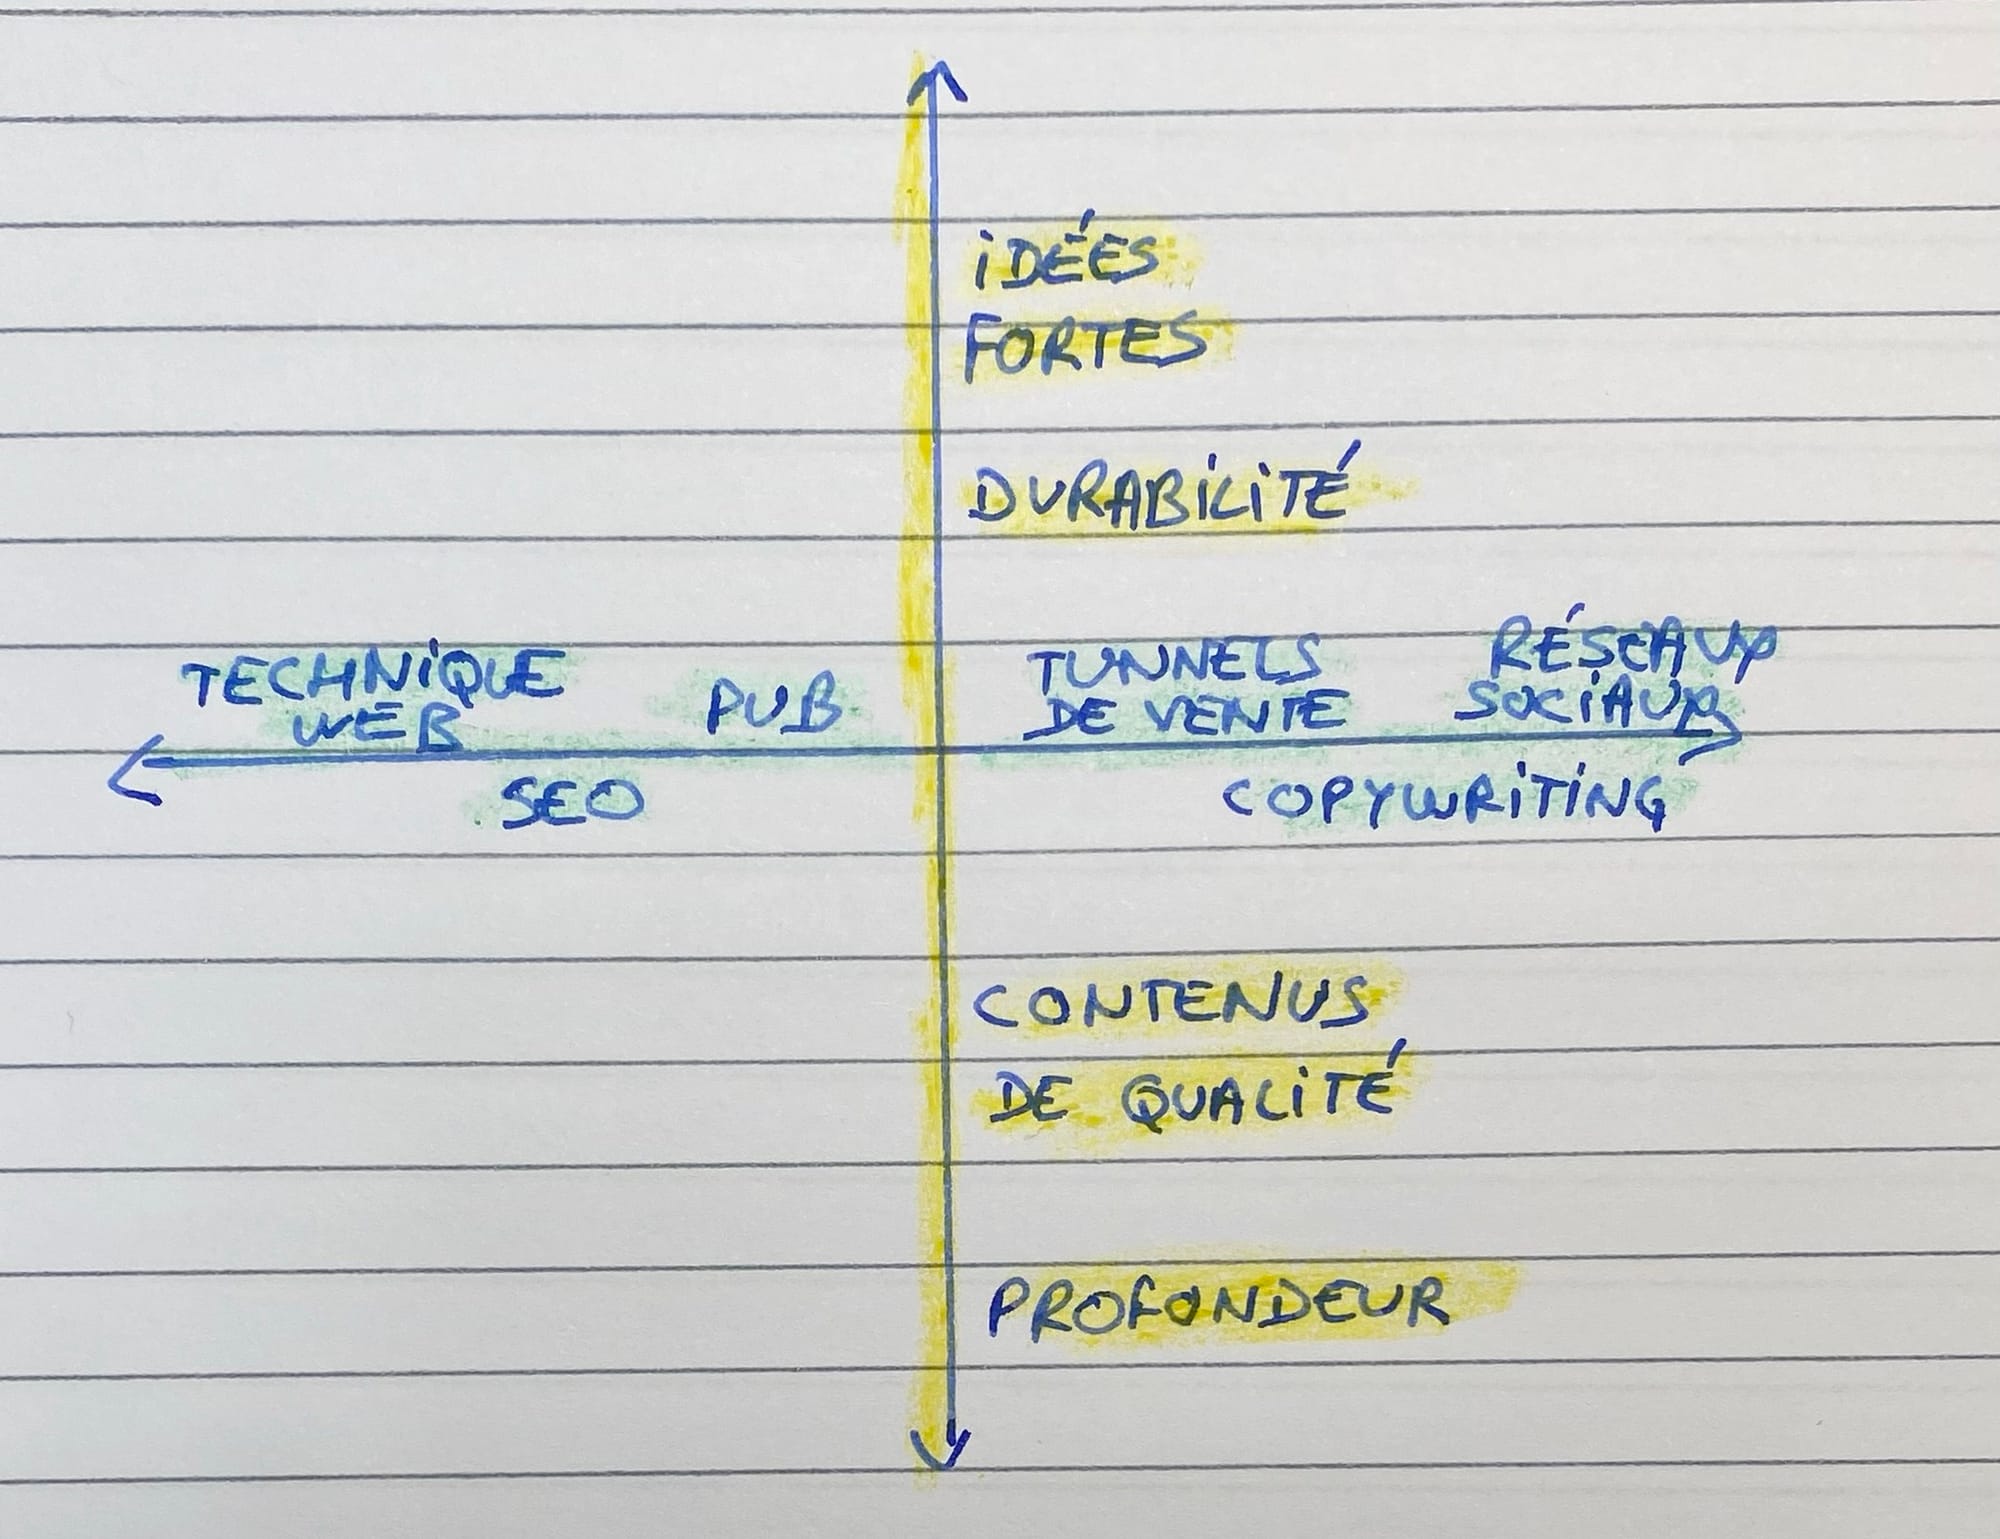 IDÉES
FORTES
DURABILITÉ
TECHNIQUE
WEB
PUB
TUNNELS
DE VENTE
RÉSEAUX
SOCIAUX
SEO
COPYWRITING
CONTENUS
DE QUALITÉ
PROFONDEUR